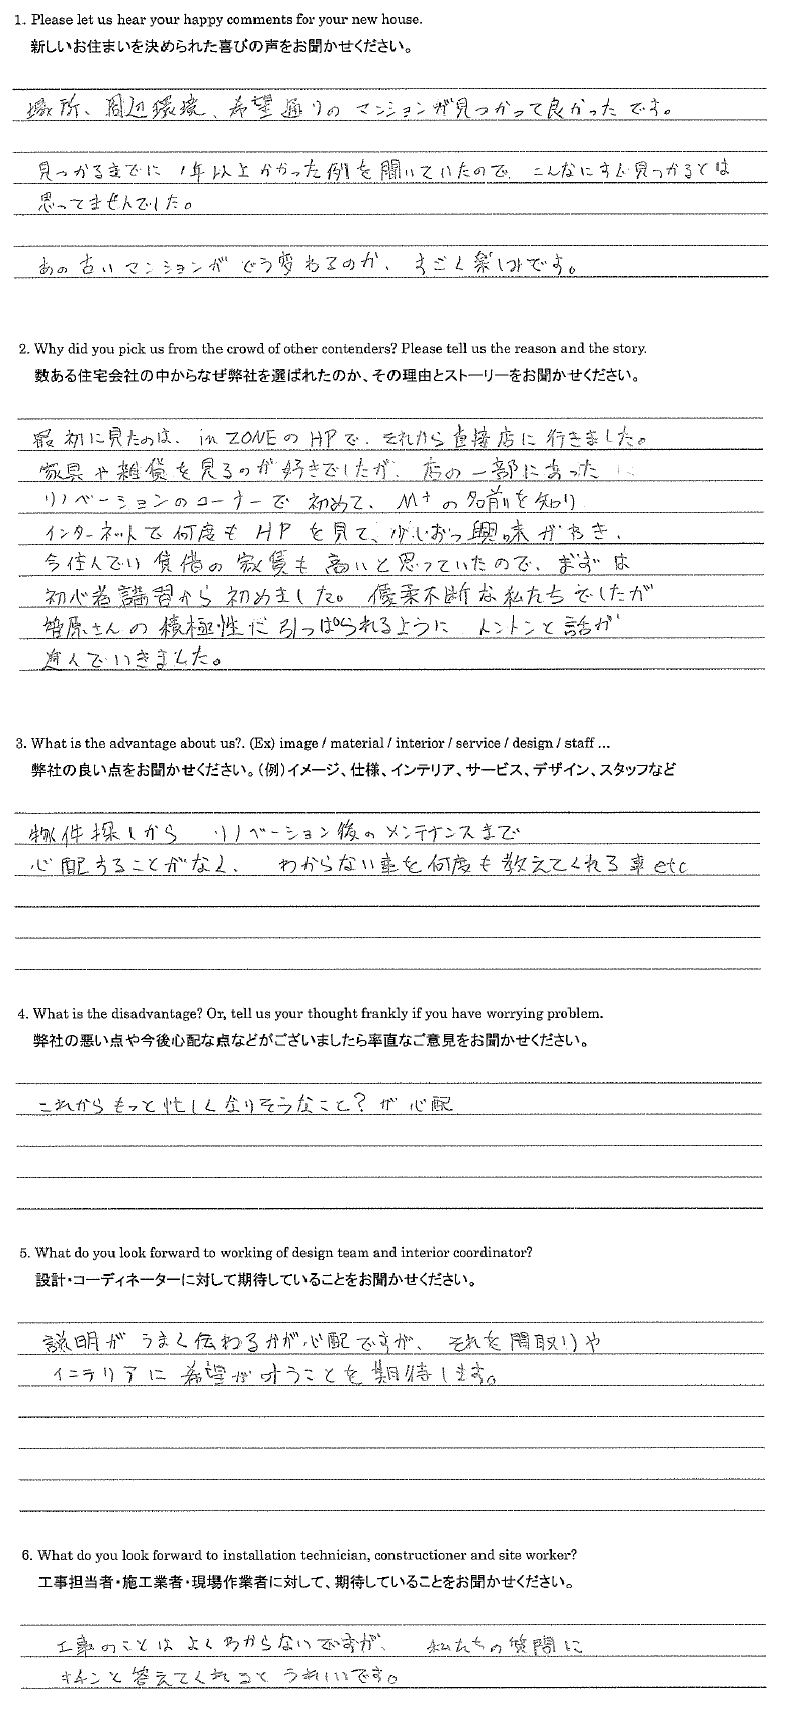 1. Please let us hear your happy comments for your new house.
新しいお住まいを決められた喜びの声をお聞かせください。
場所、周辺環境、希望通りのマンションが見つかって良かったです。
見つかるまでに1年以上かかった例を聞いていたので、こんなにすぐ見つかるとは
思ってませんでした。
あの古いマンションがどう変わるのか、すごく楽しみです。
2. Why did you pick us from the crowd of other contenders? Please tell us the reason and the story.
数ある住宅会社の中からなぜ弊社を選ばれたのか、その理由とストーリーをお聞かせください。
最初に見たのは、in ZONEのHPで、それから直接店に行きました。
家具や雑貨を見るのが好きでしたが、店の一部にあった
リノベーションのコーナーで初めて、M+の名前を知り
インターネットで何度もHPを見て、少しずつ興味がわき、
今住んでい賃借の家賃も高いと思っていたので、まずは
初心者講習から初めました。優柔不断な私たちでしたが
笹原さんの積極性に引っぱられるようにトントンと話が
進んでいきました。
3. What is the advantage about us?. (Ex) image / material / interior / service / design / staff ...
弊社の良い点をお聞かせください。（例）イメージ、仕様、インテリア、サービス、デザイン、スタッフなど
物件探しから リノベーション後のメンテナンスまで
心配することがなく、 わからない事を何度も教えてくれる事etc
4. What is the disadvantage? Or, tell us your thought frankly if you have worrying problem.
弊社の悪い点や今後心配な点などがございましたら率直なご意見をお聞かせください。
これからもっと忙しくなりそうなこと？が心配
5. What do you look forward to working of design team and interior coordinator?
設計・コーディネーターに対して期待していることをお聞かせください。
説明がうまく伝わるかが心配ですが、それを間取りや
インテリアに希望が叶うことを期待します。
6. What do you look forward to installation technician, constructioner and site worker?
工事担当者・施工業者・現場作業者に対して、期待していることをお聞かせください。
工事のことはよくわからないですが、 私たちの質問に
キチンと答えてくれるとうれしいです。